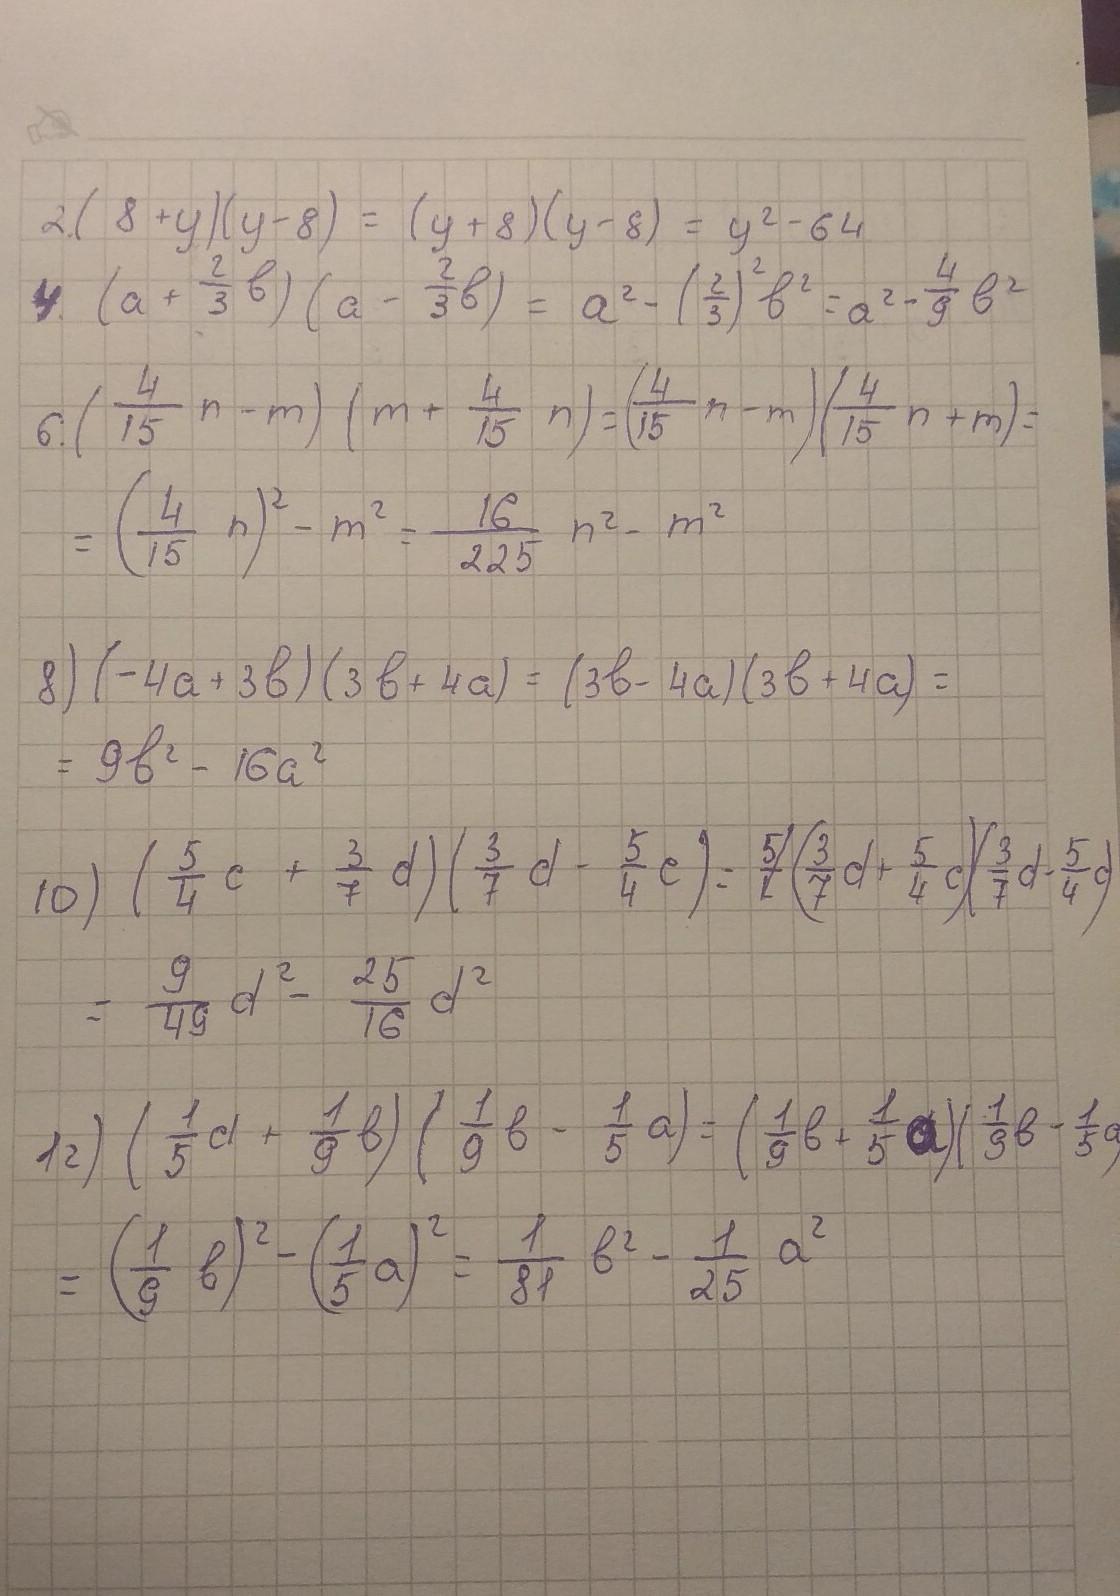 2.(8+y)(y-8) = (y+8)(y-8) = y²-64
4. (a + 2/3 b)(a - 2/3 b) = a² - (2/3)² b² = a² - 4/9 b²
6.(4/15 n - m)(m + 4/15 n) = (4/15 n - m)(4/15 n + m) =
= (4/15 n)² - m² = 16/225 n² - m²
8) (-4a+3b)(3b+4a) = (3b-4a)(3b+4a) =
= 9b² - 16a²
10) (5/4 c + 3/7 d)(3/7 d - 5/4 c) = (3/7 d + 5/4 c)(3/7 d - 5/4 c)
= 9/49 d² - 25/16 d²
12) (1/5 d + 1/9 b)(1/9 b - 1/5 a) = (1/9 b + 1/5 a)(1/9 b - 1/5 a
= (1/9 b)² - (1/5 a)² = 1/81 b² - 1/25 a²